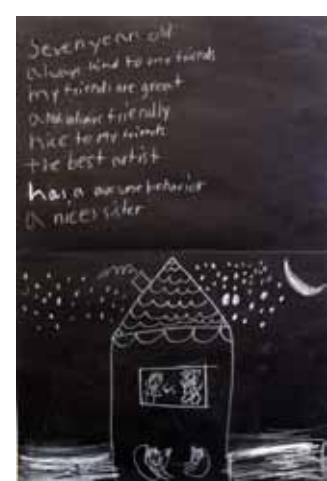 Seven year old
always kind to my friends
my friends are great
and always friendly
nice to my friends
the best artist
has a awesome behavior
a nices sister